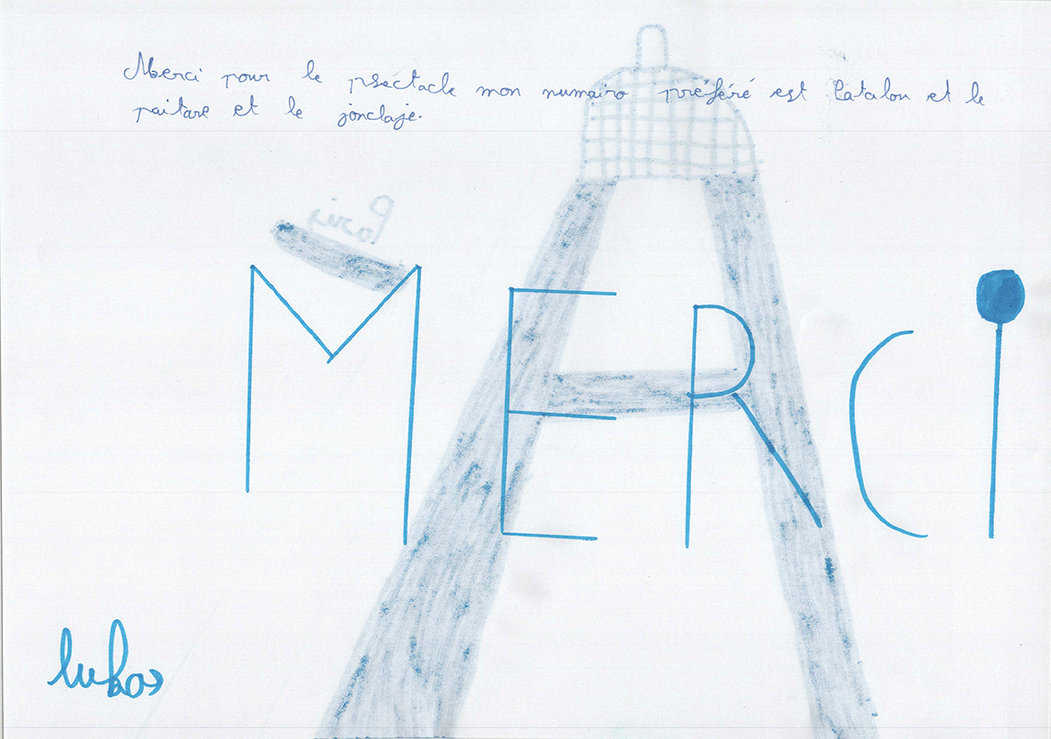 Merci pour le pséctacle mon numairo préféré est l'atalon et le
paitare et le jonclaje.
MERCI
lukas